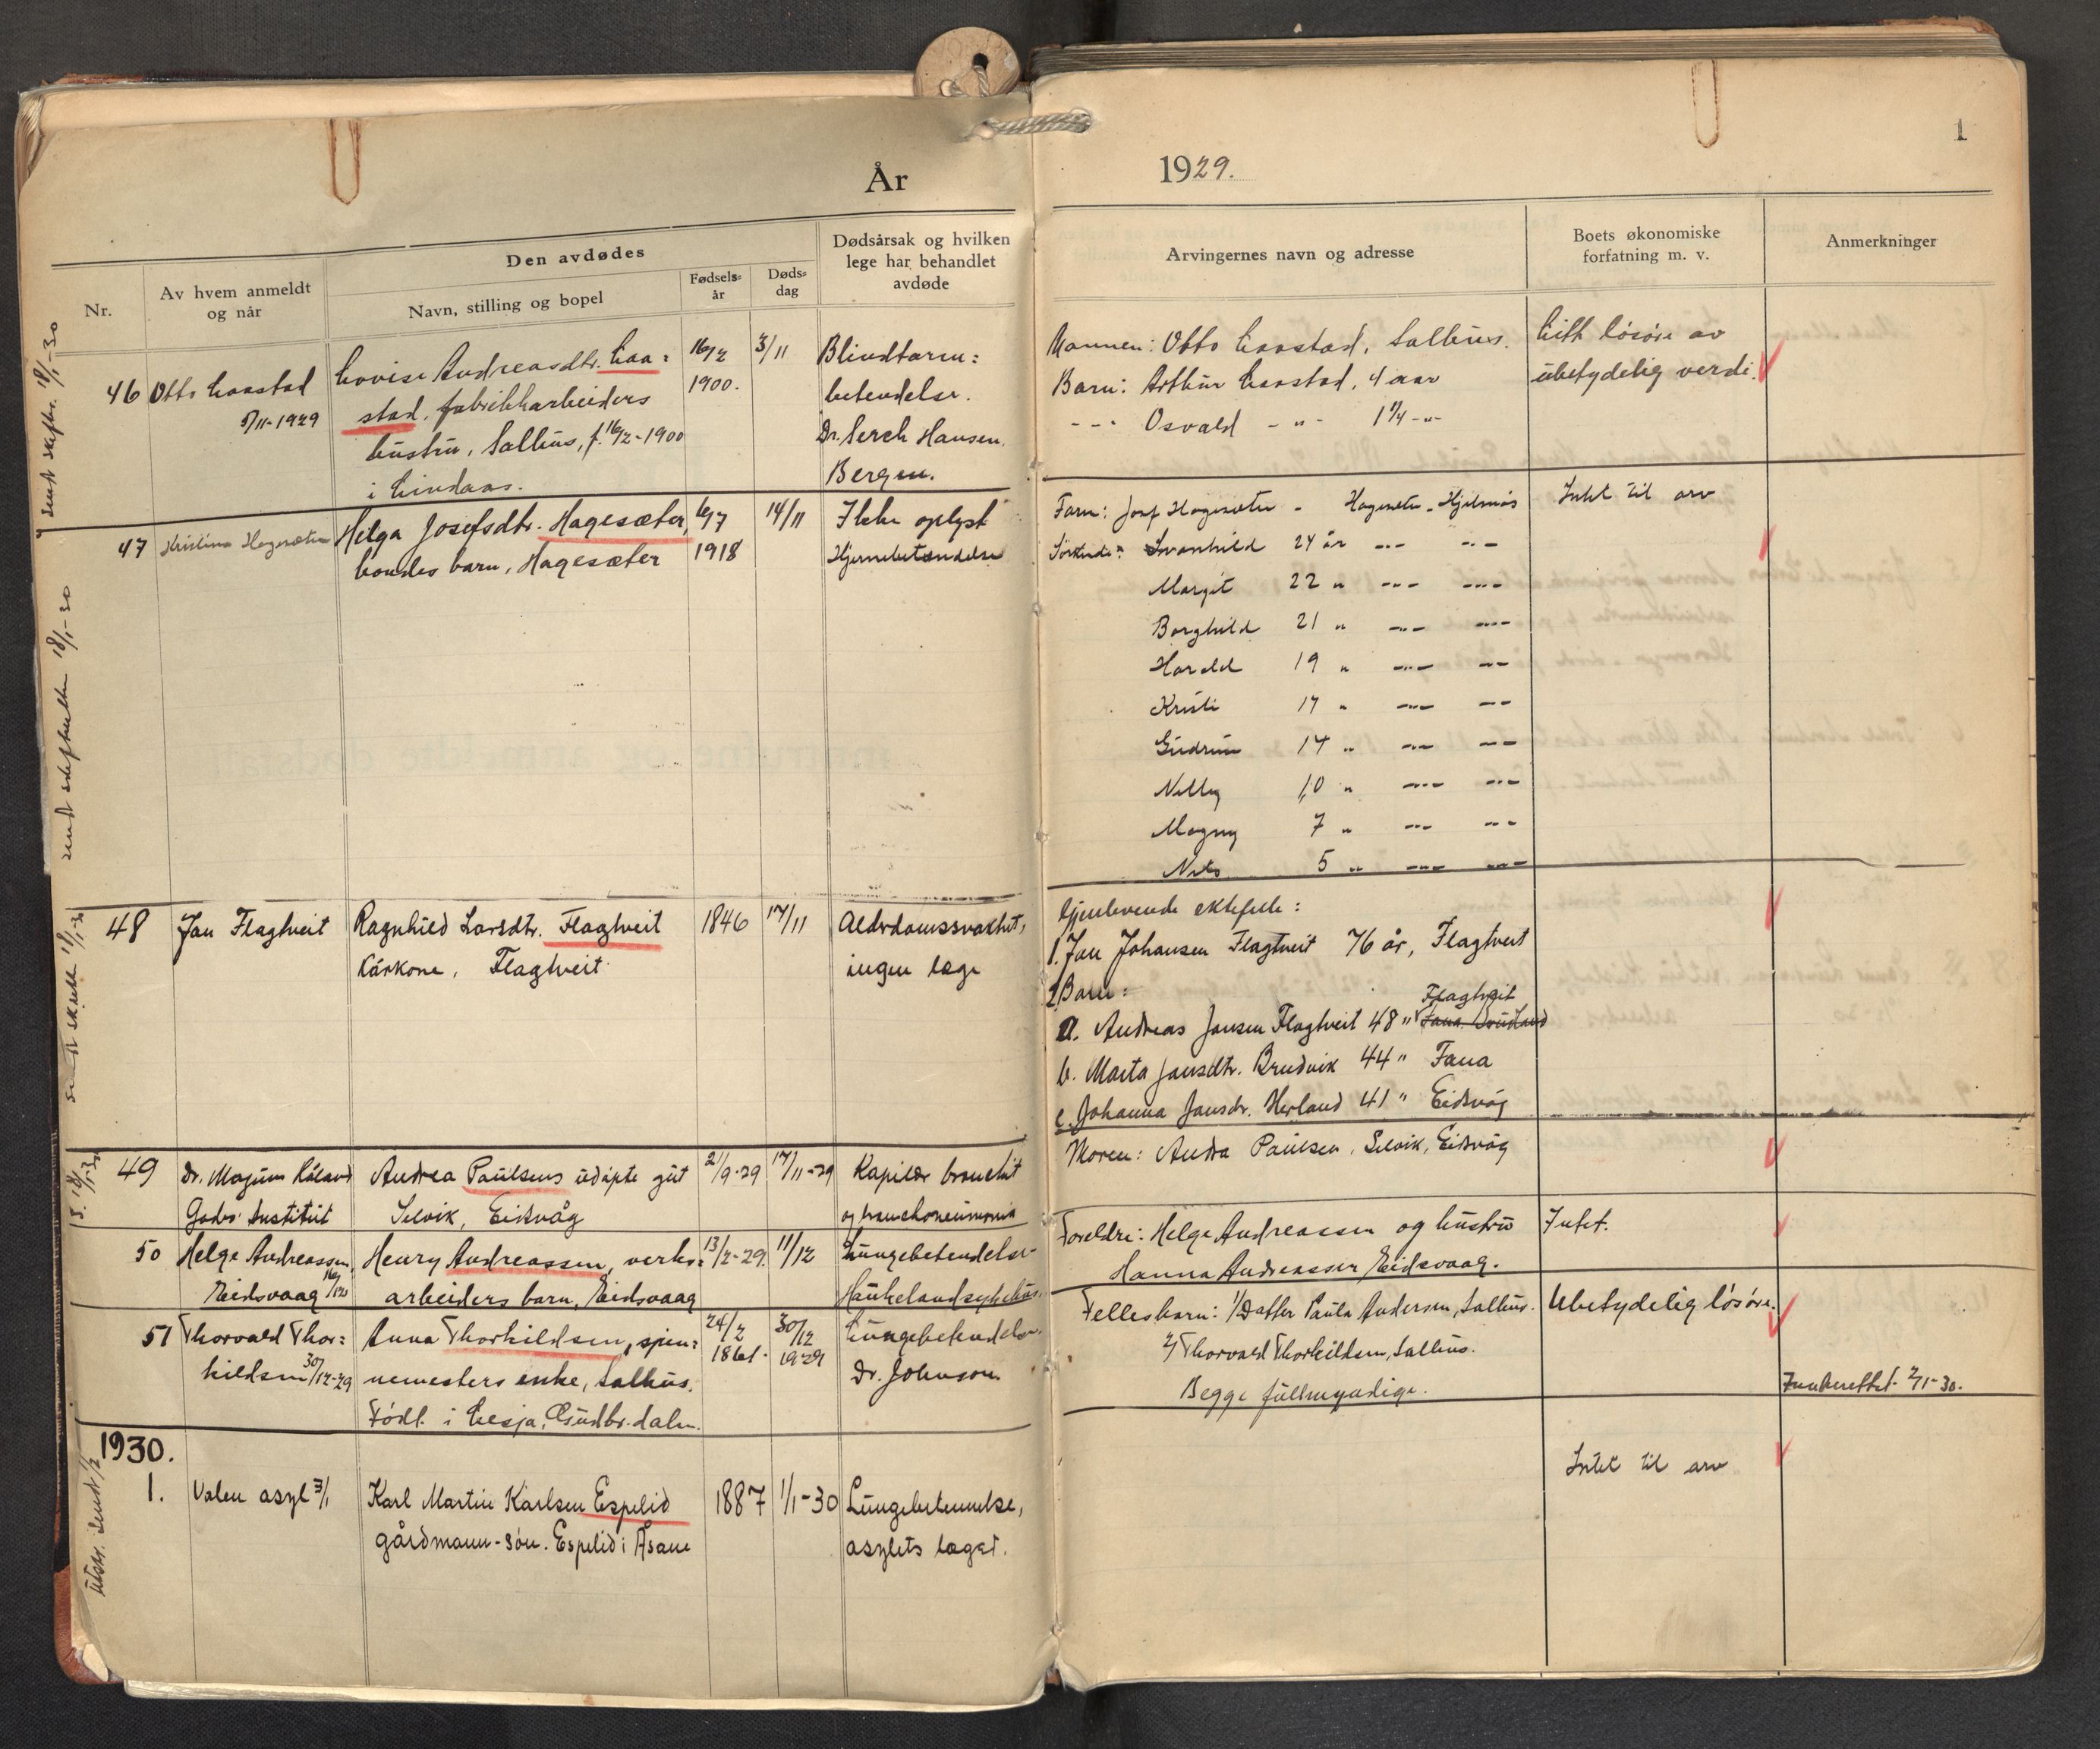 År 1929.
1
Nr.
Av hvem anmeldt
og når
Den avdødes
Navn, stilling og bopel
Fødsels=
år
Døds=
dag
Dødsårsak og hvilken
lege har behandlet
avdøde
Arvingernes navn og adresse
Boets økonomiske
forfatning m. v.
Anmerkninger
sendt skiftr. 18/1-30
46 Otto Laastad
5/11-1929
Lovise Andreasdtr. Laa=
stad, fabrikkarbeiders
hustru, Salhus, f. 16/2-1900
i Lindaas.
16/2
1900.
3/11
Blindtarm=
betendelse.
Dr. Hansen.
Bergen.
Mannen: Otto Laastad, Salhus.
Barn: Arthur Laastad, 4 aar
--- Osvald - " - 1 1/4 - " -
Litt løsøre av
ubetydelig verdi.
sendt skifteretten 18/1-30
47 Kristina Hagesæter
Helga Josefsdtr. Hagesæter,
bondes barn, Hagesæter
6/7
1918
14/11
Ikke oplyst
Hjernebetændelse
Faren: Josef Hagesæter - Hagesæter - Hjelmås
Søskende: Svanhild 24 år -"- -"-
Margit 22 " -"- -"-
Borghild 21 " -"- -"-
Harald 19 " -"- -"-
Kristi 17 " -"- -"-
Gudrun 14 " -"- -"-
Nelly 10 " -"- -"-
Magny 7 " -"- -"-
Nils 5 " -"- -"-
Intet til arv
sendt skifte 18/1-30
48 Jan Flagtveit
Ragnhild Larsdtr. Flagtveit
Kårkone, Flagtveit
1846
17/11
Alderdomssvakhet,
ingen læge
Gjenlevende ektefelle:
1. Jan Johansen Flagtveit 76 år, Flagtveit
2 Barn:
Flagtveit
a. Andreas Jansen Flagtveit 48 " Fana
b. Marta Jansdtr. Brudvik 44 " Fana
c. Johanna Jansdr. Herland 41 " Eidsvåg
S. 18/1-30
49 Dr. Magnus Håland
Gades Institut
Andrea Paulsens udøpte gut
Selvik, Eidsvåg
2/9-29
17/11-29
Kapilær bronchit
og bronchopneumonia
Moren: Andrea Paulsen, Selvik, Eidsvåg
50 Helge Andreassen,
Eidsvaag 16/12
Henry Andreassen, verks=
arbeiders barn, Eidsvaag
13/2-29.
11/12
Lungebetendelse
Haukelandsykehus.
Foreldre: Helge Andreassen og hustru
Hanna Andreassen Eidsvaag.
Intet.
51 Thorvald Thor=
kildsen 30/12-29
Anna Thorkildsen, spin=
nemesters enke, Salhus.
Født i Lesja, Gudbr.dalen.
24/2
1861.
30/12
1929
Lungebetendelse.
Dr. Johnson.
Fellesbarn: 1/ Datter Paula Andersen, Salhus.
2/ Thorvald Thorkildsen, Salhus.
Begge fullmyndige.
Ubetydelig løsøre.
Innberettet 2/1-30.
1930.
sendt 1/2
1. Valen asyl 3/1
Karl Martin Karlsen Espelid
gårdmann-søn. Espelid i Åsane
1887
1/1-30
Lungebetennelse,
asylets læge.
Intet til arv